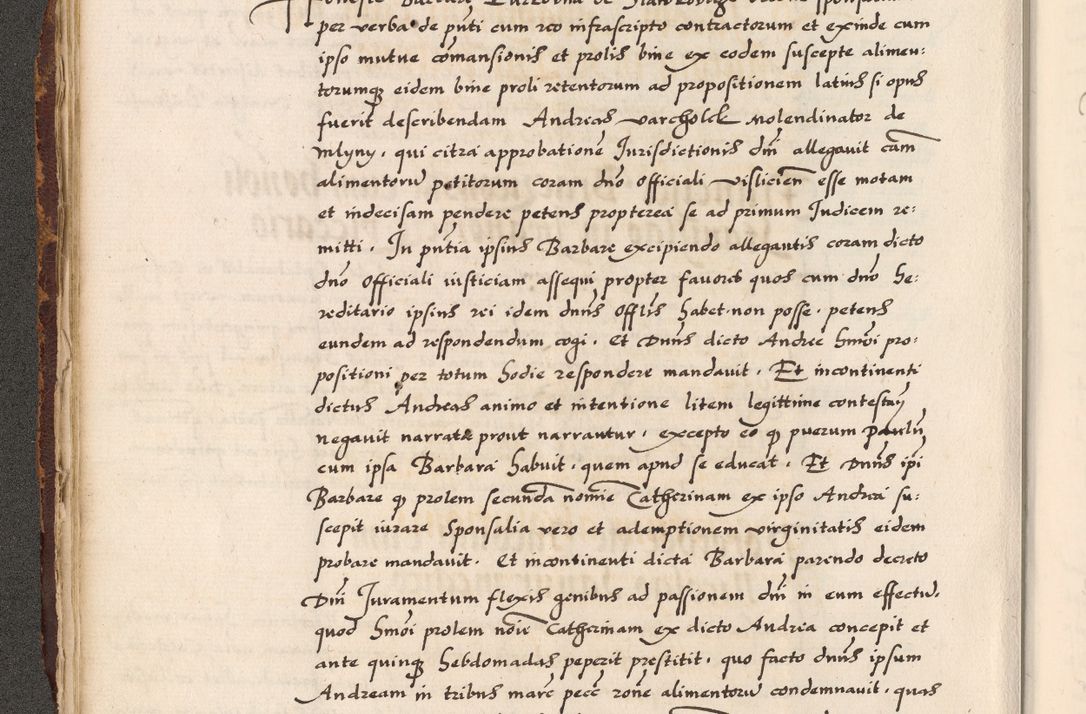 per verba de pñti cum reo infrascripto contractorum et exinde cum
ipso mutue cōmansionis et prolis bine ex eodem suscepte alimen:
torumqȝ eidem bine proli retentorum ad propositionem latius si opus
fuerit describendam Andreas varcholek Molendinator de
Mlyny, qui citra approbationē Jurisdictionis dñi allegavit cām
alimentorū petitorum coram dño Officiali visliciēn esse motam
et indecisam pendere petens propterea se ad primum Judicem re:
mitti. In pñtia ipsius Barbare excipiendo allegantis coram dicto
dño Officiali iusticiam assequi propter favores quos cum dño he:
reditario ipsius rei idem dnūs Offlis habet non posse, petens
eundem ad respondendum cogi. Et Dnūs dicto Andree hm̄oi pro:
positioni per totum hodie respondere mandavit. Et incontinenti
dictus Andreas animo et intentione litem legittime contestañ
negavit narrata prout narrantur, excepto eo qȝ puerum paulū
cum ipsa Barbara habuit, quem apud se educat. Et Dnūs ipi
Barbare qȝ prolem secunda nomīe Catherinam ex ipso Andrea su:
scepit iurare Sponsalia vero et ademptionem virginitatis eidem
probare mandavit. Et incontinenti dicta Barbara parendo decreto
Dñi Juramentum flexis genibus ad passionem dñi in eum effectū,
quod hm̄oi prolem noīe Catherinam ex dicto Andrea concepit et
ante quinqȝ hebdomadas peperit prestitit, quo facto dnūs ipsum
Andream in tribus marc̄ pecc̄ rōne alimentorū condemnavit, quas